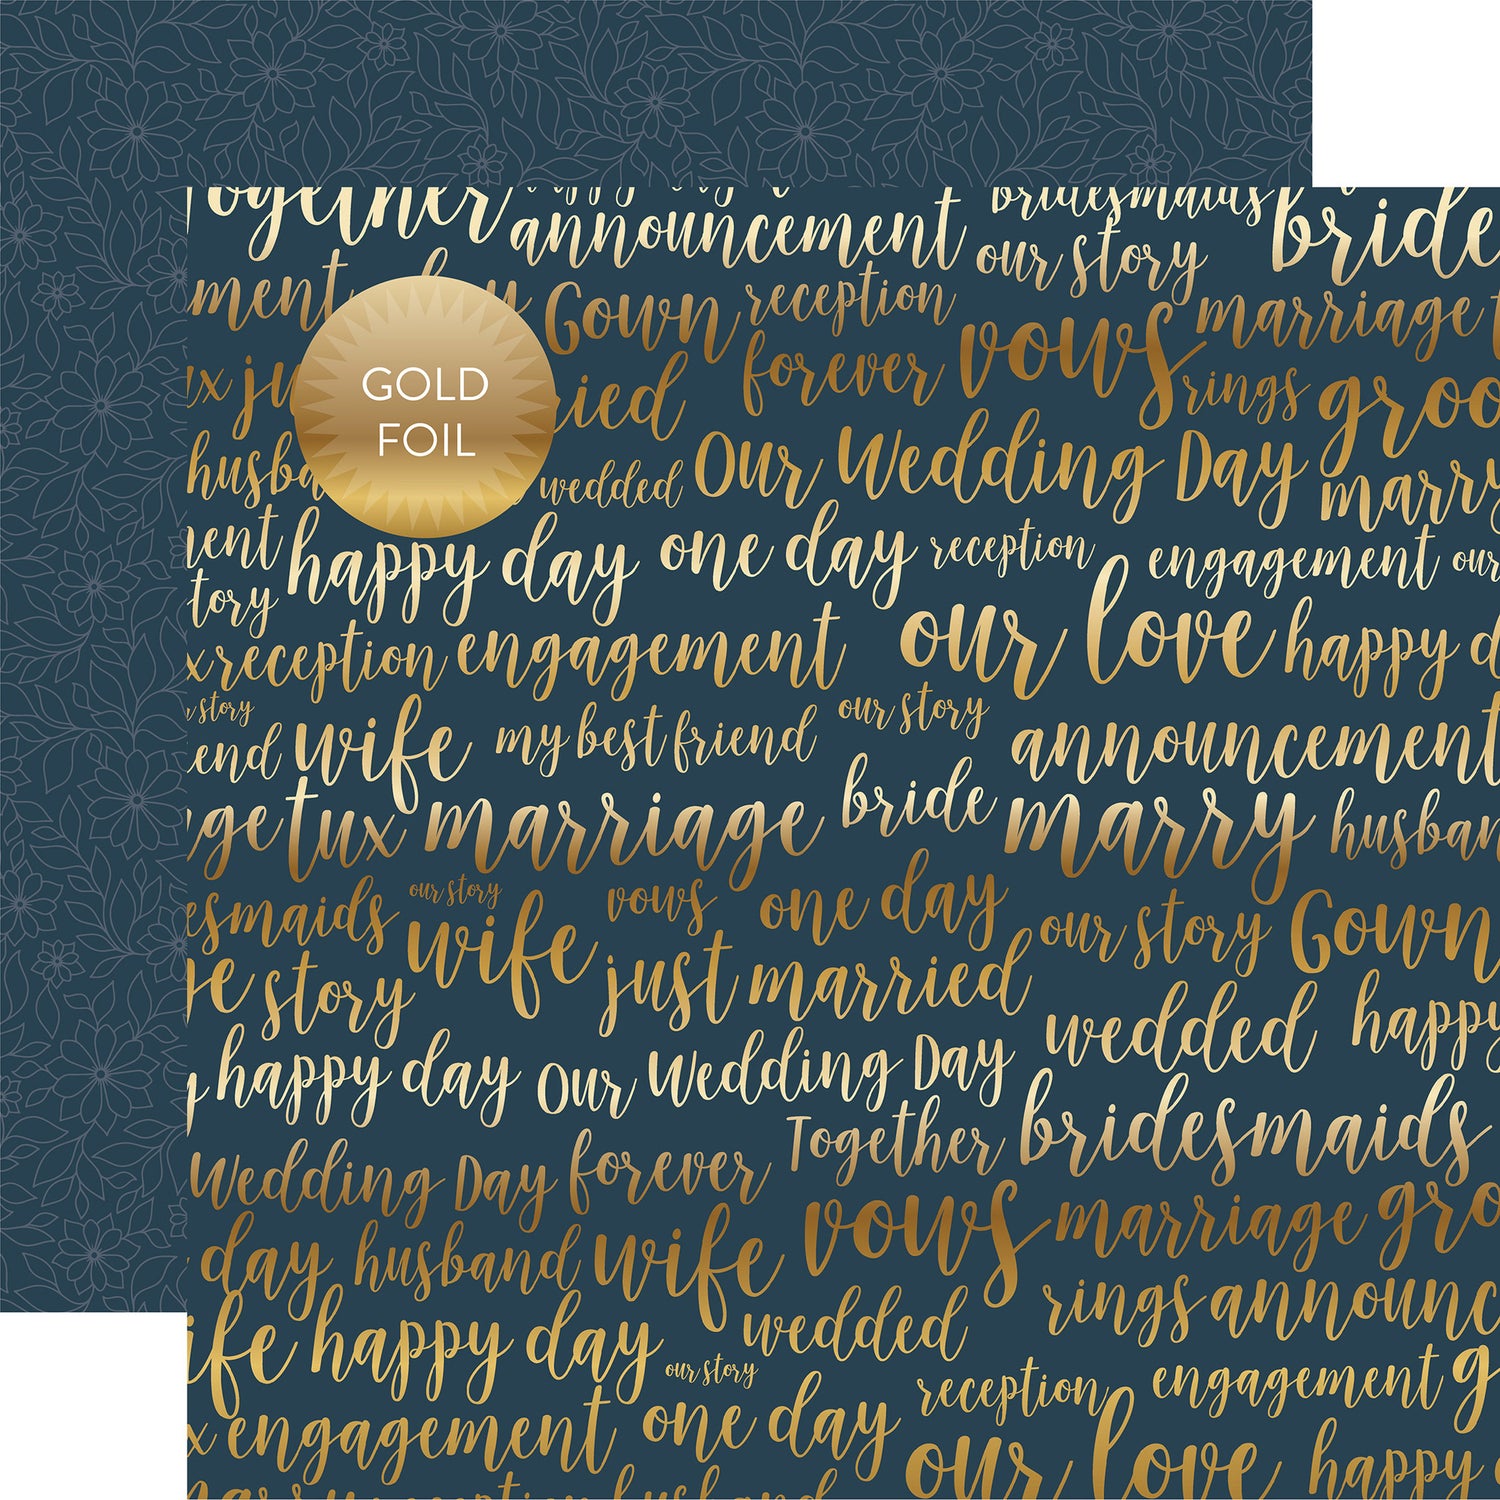 Together announcement bridesmaids bride
our story
Gown reception marriage
forever vows
rings
GOLD
FOIL
wedded Our Wedding Day marry
happy day one day reception engagement our
story
reception engagement our love happy
story our story
wife my best friend announcement
bride
tux marriage marry husban
our story vows one day
esmaids wife our story Gown
story just married
wedded happy
happy day Our Wedding Day
Together bridesmaids
Wedding Day forever
vows marriage gro
day husband wife
rings announc
ife happy day wedded
our story
reception engagement g
x engagement one day
our love happy